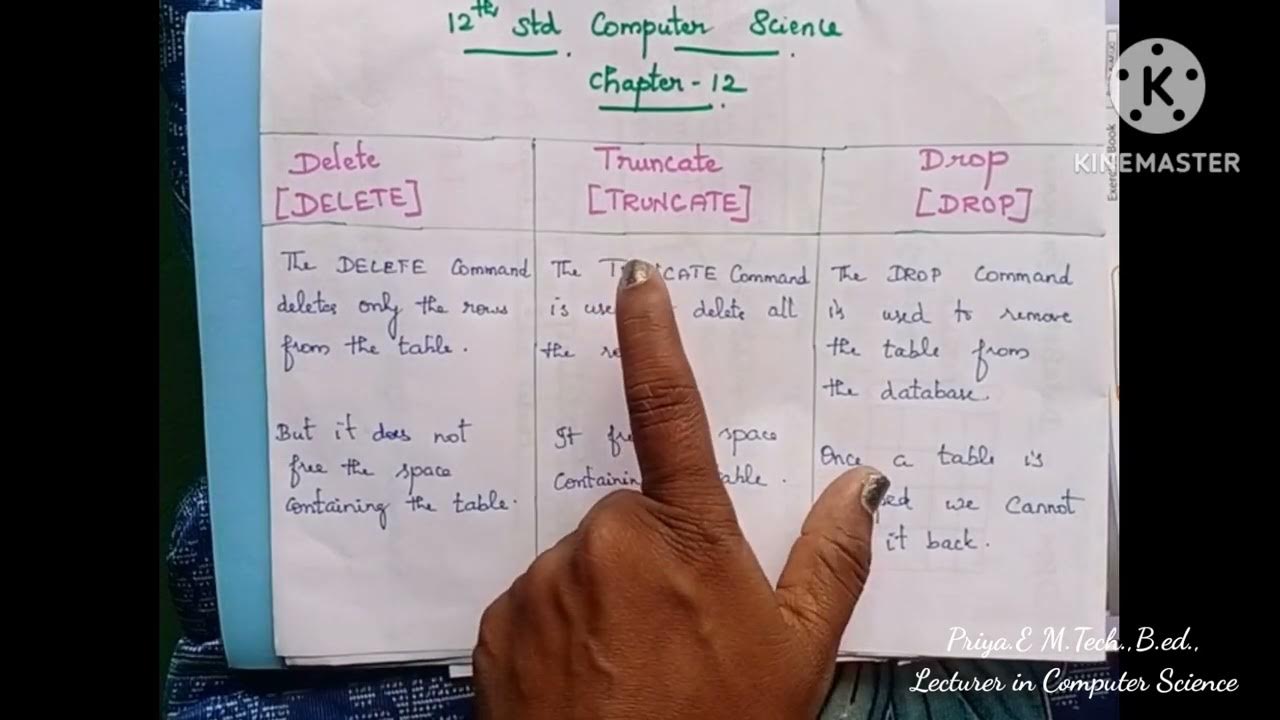 12th std Computer Science
Chapter - 12
Delete
[DELETE]
Truncate
[TRUNCATE]
Drop
[DROP]
The DELETE Command
deletes only the rows
from the table.
But it does not
free the space
containing the table.
The Command
is delete all
the
It space
.
The DROP Command
is used to remove
the table from
the database.
Once a table is
we cannot
it back.
K
KINEMASTER
Exercise Book
Priya.E M.Tech.,B.ed.,
Lecturer in Computer Science